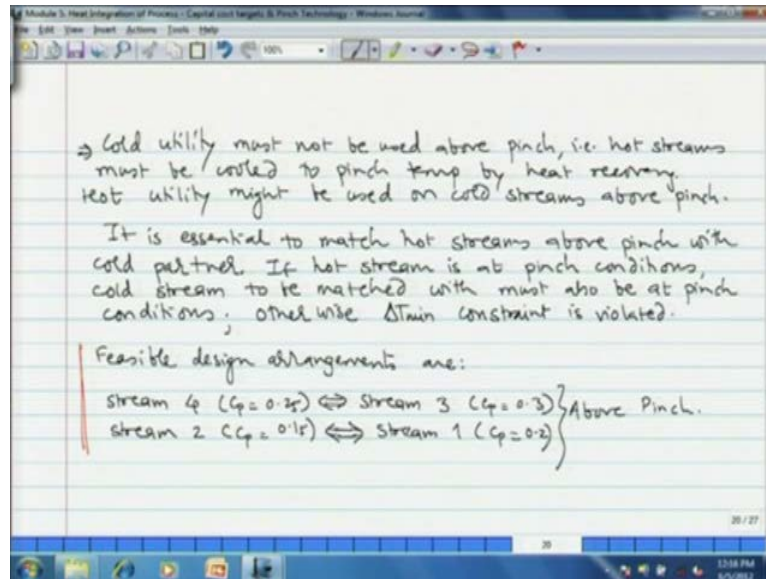 Module 5: Heat Integration of Process - Capital cost targets & Pinch Technology - Windows Journal
File Edit View Insert Actions Tools Help
100%
⇒ Cold utility must not be used above pinch, i.e. hot streams
must be cooled to pinch temp by heat recovery.
Hot utility might be used on cold streams above pinch.
It is essential to match hot streams above pinch with
cold partner. If hot stream is at pinch conditions,
cold stream to be matched with must also be at pinch
conditions; otherwise ΔTmin constraint is violated.
Feasible design arrangements are:
stream 4 (Cp = 0.25) ⇔ stream 3 (Cp = 0.3) } Above Pinch.
stream 2 (Cp = 0.15) ⇔ stream 1 (Cp = 0.2)
20 / 27
20
12:08 PM